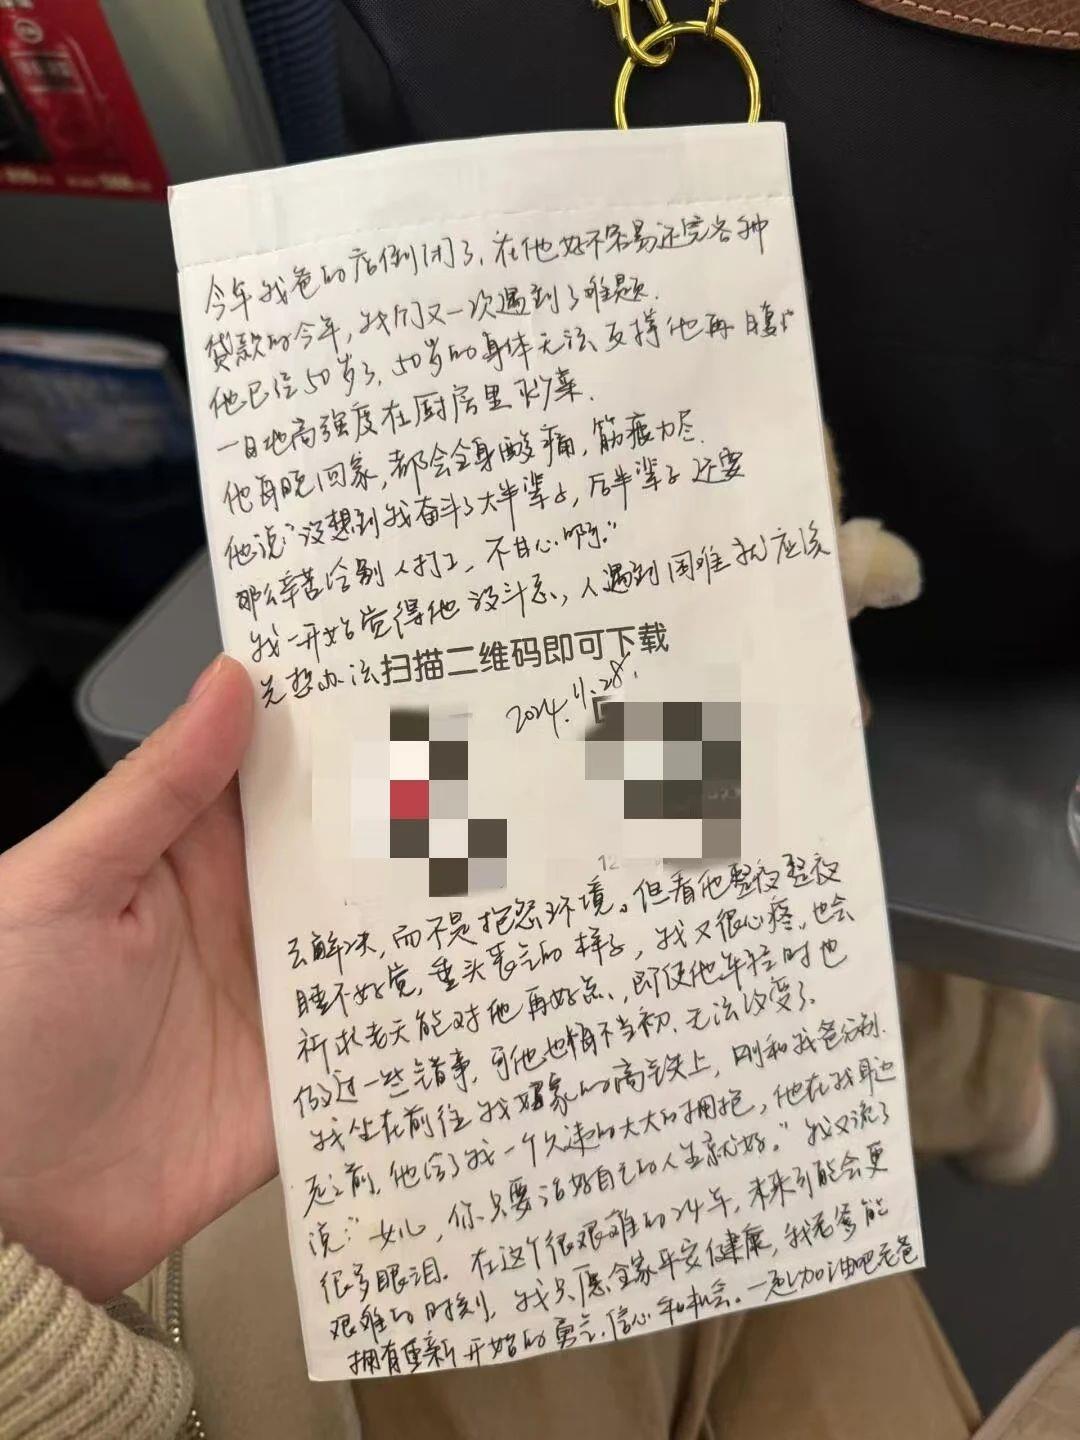 今年我爸的店倒闭了，在他好不容易还完各种
贷款的今年，我们又一次遇到了难题.
他已经50岁了，50岁的身体无法支撑他再日复
一日地高强度在厨房里炒菜.
他每晚回家，都会全身酸痛，筋疲力尽.
他说："没想到我奋斗了大半辈子，后半辈子还要
那么辛苦给别人打工，不甘心啊。"
我一开始觉得他没斗志，人遇到困难就应该
先想办法
扫描二维码即可下载
2024.11.28.
12
去解决，而不是抱怨环境。但看他整夜整夜
睡不好觉，垂头丧气的样子，我又很心疼，也会
祈求老天能对他再好点，即使他年轻时也
做过一些错事，可他也悔不当初，无法改变了.
我坐在前往我家的高铁上，刚和我爸分别.
之前，他给了我一个久违的大大的拥抱，他在我耳边
说："女儿，你只要活好自己的人生就好。"我又流了
很多眼泪。在这个很艰难的24年，未来可能会更
艰难的时刻，我只愿全家平安健康，我老爹能
拥有重新开始的勇气、信心和机会。一起加油吧老爸